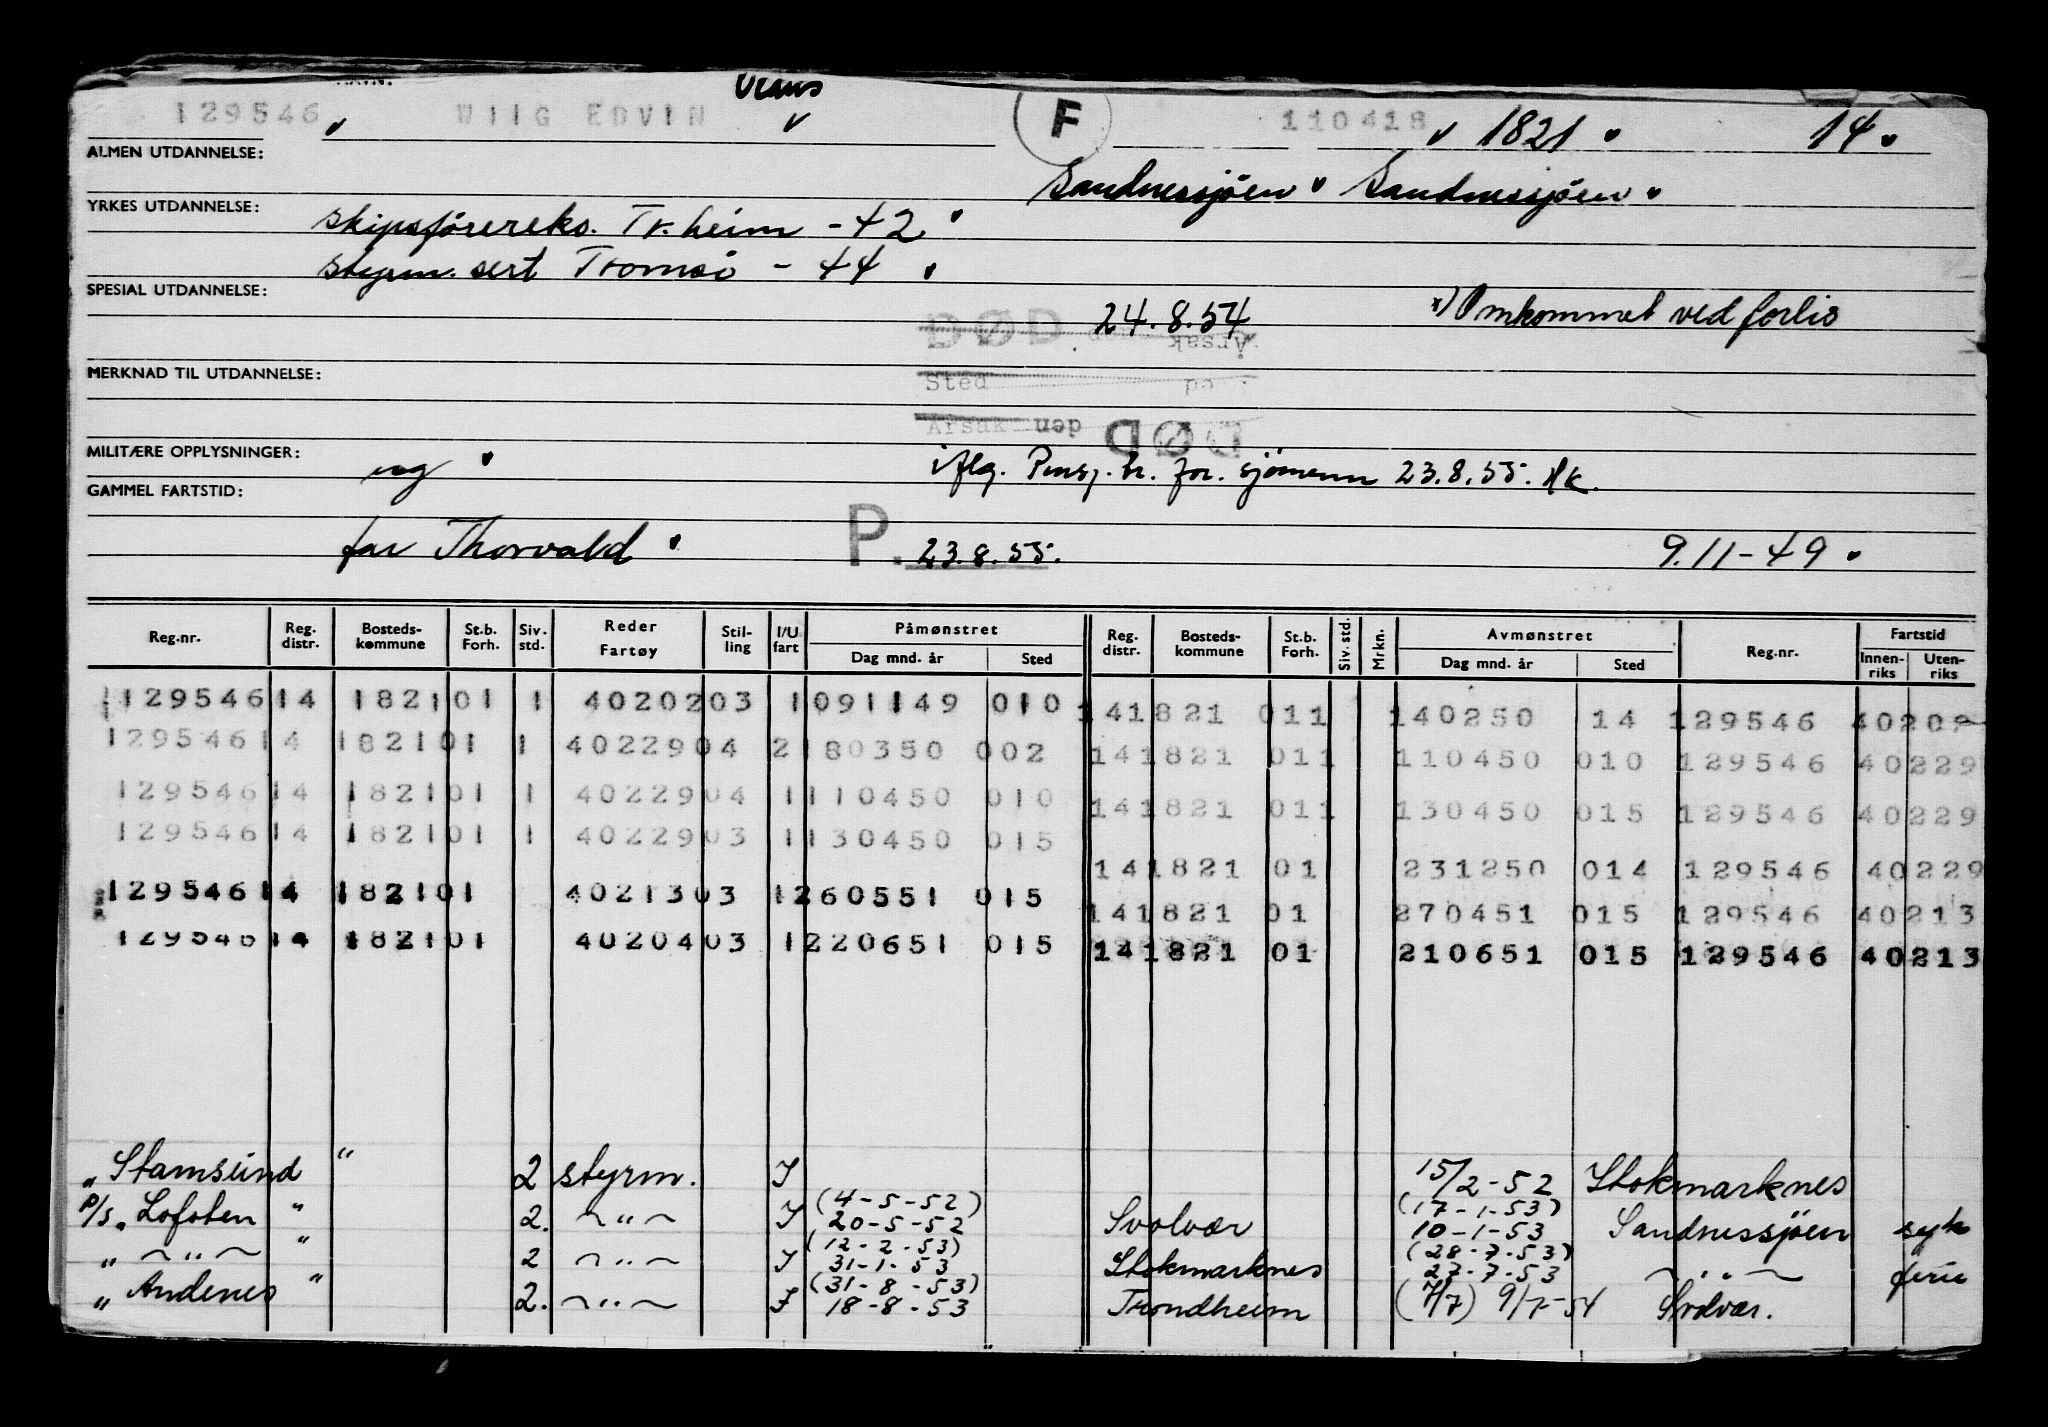 129546 WIIG EDVIN F 110418 1821 14
ALMEN UTDANNELSE:
Sandnessjøen Sandnessjøen
YRKES UTDANNELSE: skipsförereks. Tr.heim - 42
styrm. sert Tromsö - 44
SPESIAL UTDANNELSE:
DØD 24.8.54 x) Omkommet ved forlis
Årsak
MERKNAD TIL UTDANNELSE:
Sted på
Årsak den DØD
MILITÆRE OPPLYSNINGER: iflg. Pensj. tr. for. sjömenn 23.8.55. HK.
GAMMEL FARTSTID:
far Thorvald P. 23.8.55. 9.11-49
Reg.nr. Reg. distr. Bosteds-kommune St.b. Forh. Siv. std. Reder Fartøy Stil-ling I/U fart Påmønstret Dag mnd. år Sted Reg. distr. Bosteds-kommune St.b. Forh. Siv. std. Mrkn. Avmønstret Dag mnd. år Sted Reg.nr. Fartstid Innen-riks Uten-riks
129546 14 1821 01 1 40202 03 1 091149 010 14 1821 011 140250 14 129546
129546 14 1821 01 1 40229 04 2 180350 002 14 1821 011 110450 010 129546 40229
129546 14 1821 01 1 40229 04 1 110450 010 14 1821 011 130450 015 129546 40229
129546 14 1821 01 1 40229 03 1 130450 015 14 1821 01 231250 014 129546 40229
129546 14 1821 01 40213 03 1 260551 015 14 1821 01 270451 015 129546 40213
129546 14 1821 01 40204 03 1 220651 015 14 1821 01 210651 015 129546 40213
" Stamsund " 2 styrm. I 15/2-52 Stokmarknes
P/s " Lofoten " 2. ~"~ I (4-5-52) 20-5-52 Svolvær (17-1-53) 10-1-53 Sandnessjöen syk
" ~"~ " 2 ~"~ I (12-2-53) 31-1-53 Stokmarknes (28-7-53) 27-7-53 ~"~ ferie
" Andenes " 2. ~"~ I (31-8-53) 18-8-53 Trondheim (7/7) 9/7-54 Svolvær.